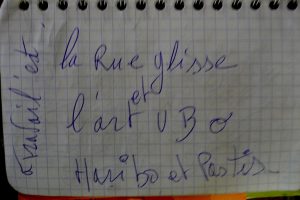 travail c'est
la Rue glisse
et
l'art U B O
Haribo et Pastis